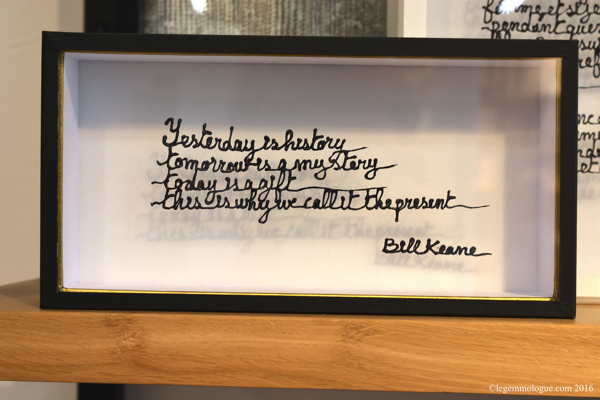 Yesterday is history
tomorrow is a my story
today is a gift
this is why we call it the present
Bill Keane
pendant que
©legemmologue.com 2016